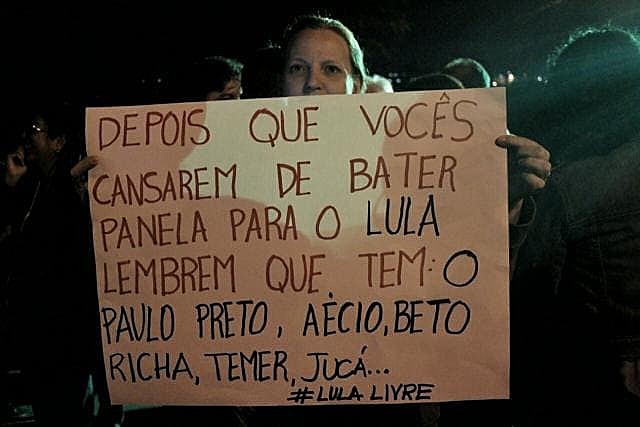 DEPOIS QUE VOCÊS
CANSAREM DE BATER
PANELA PARA O LULA
LEMBREM QUE TEM: O
PAULO PRETO, AÉCIO, BETO
RICHA, TEMER, JUCÁ...
#LULA LIVRE